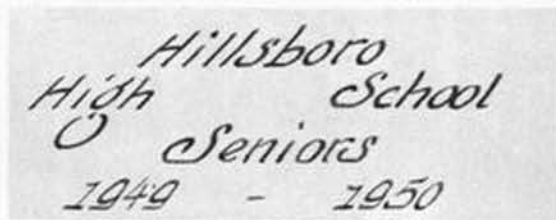 Hillsboro
High School
Seniors
1949 - 1950